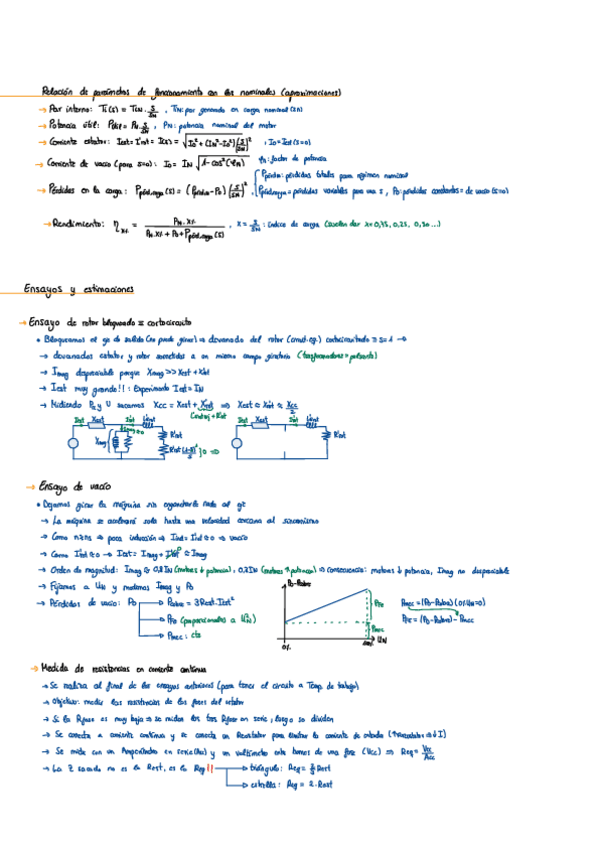 Relación de parámetros de funcionamiento con los nominales (aproximaciones)
→ Par interno: Ti(s) = TiN · s/sN , TiN: par generado en carga nominal (sN)
→ Potencia útil: Pútil = PN · s/sN , PN: potencia nominal del motor
→ Corriente estator: Iest = I(s) = √(I0² + (IN² - I0²)(s/sN)²) , I0 = Iest(s=0)
→ Corriente de vacío (para s=0): I0 = IN √(1 - cos²(φN)) φN: factor de potencia
→ Pérdidas en la carga: Ppérd,carga(s) = (Ppérd,N - P0)(s/sN)²
Ppérd,N: pérdidas totales para régimen nominal
Ppérd,carga = pérdidas variables para una s , P0: pérdidas constantes = de vacío (s=0)
→ Rendimiento: η x% = PN · x% / (PN · x% + P0 + Ppérd,carga(s)) , x = s/sN : índice de carga (suelen dar x = 0,75, 0,25, 0,50 ...)
Ensayos y estimaciones
→ Ensayo de rotor bloqueado ≡ cortocircuito
• Bloqueamos el eje de salida (no puede girar) ⇒ devanado del rotor cortocircuitado ≡ s=1 →
→ devanados estator y rotor sometidos a un mismo campo giratorio
→ Imag despreciable porque Xmag >> Xest + Xrot
→ Iest muy grande!! : Experimento Iest = IN
→ Midiendo Pcc y U sacamos Xcc = Xest + X'rot ⇒ Xest ≈ X'rot ≈ Xcc/2
Iest Xest I'rot Xmag R'rot R'rot(1-s/s) } 0 ⇒ Iest Xest I'rot R'rot
→ Ensayo de vacío
• Dejamos girar la máquina sin engancharle nada al eje
→ La máquina se acelerará sola hasta una velocidad cercana al sincronismo
→ Como n≈ns ⇒ poca inducción ⇒ Irot = I'rot ≈ 0 ⇒ vacío
→ Como I'rot ≈ 0 → Iest = Imag + I'rot ≈ Imag
→ Orden de magnitud: Imag ≈ 0,8 IN (motores ↓ potencia), 0,2 IN (motores ↑ potencia) ⇒ consecuencia: motores ↓ potencia, Imag no despreciable
→ Fijamos a UN y medimos Imag y P0
→ Pérdidas de vacío: P0
Pcobre = 3 Rest · Iest²
PFe (proporcionales a U²N)
Pmec: cte
P0-Pcobre
PFe
Pmec
0%
100% UN
Pmec = (P0 - Pcobre)(0% UN = 0)
PFe = (P0 - Pcobre) - Pmec
→ Medida de resistencias en corriente continua
→ Se realiza al final de los ensayos anteriores (para tener el circuito a Temp. de trabajo)
→ Objetivo: medir las resistencias de las fases del estator
→ Si la Rfase es muy baja ⇒ se miden las tres Rfase en serie, luego se dividen
→ Se conecta a corriente continua y se conecta un Reostator para limitar la corriente de entrada
→ Se mide con un Amperímetro en serie (Acc) y un voltímetro entre bornes de una fase (Vcc) ⇒ Req = Vcc/Acc
→ La R sacada no es la Rest, es la Req !!
triángulo: Req = 2/3 Rest
estrella: Req = 2 · Rest